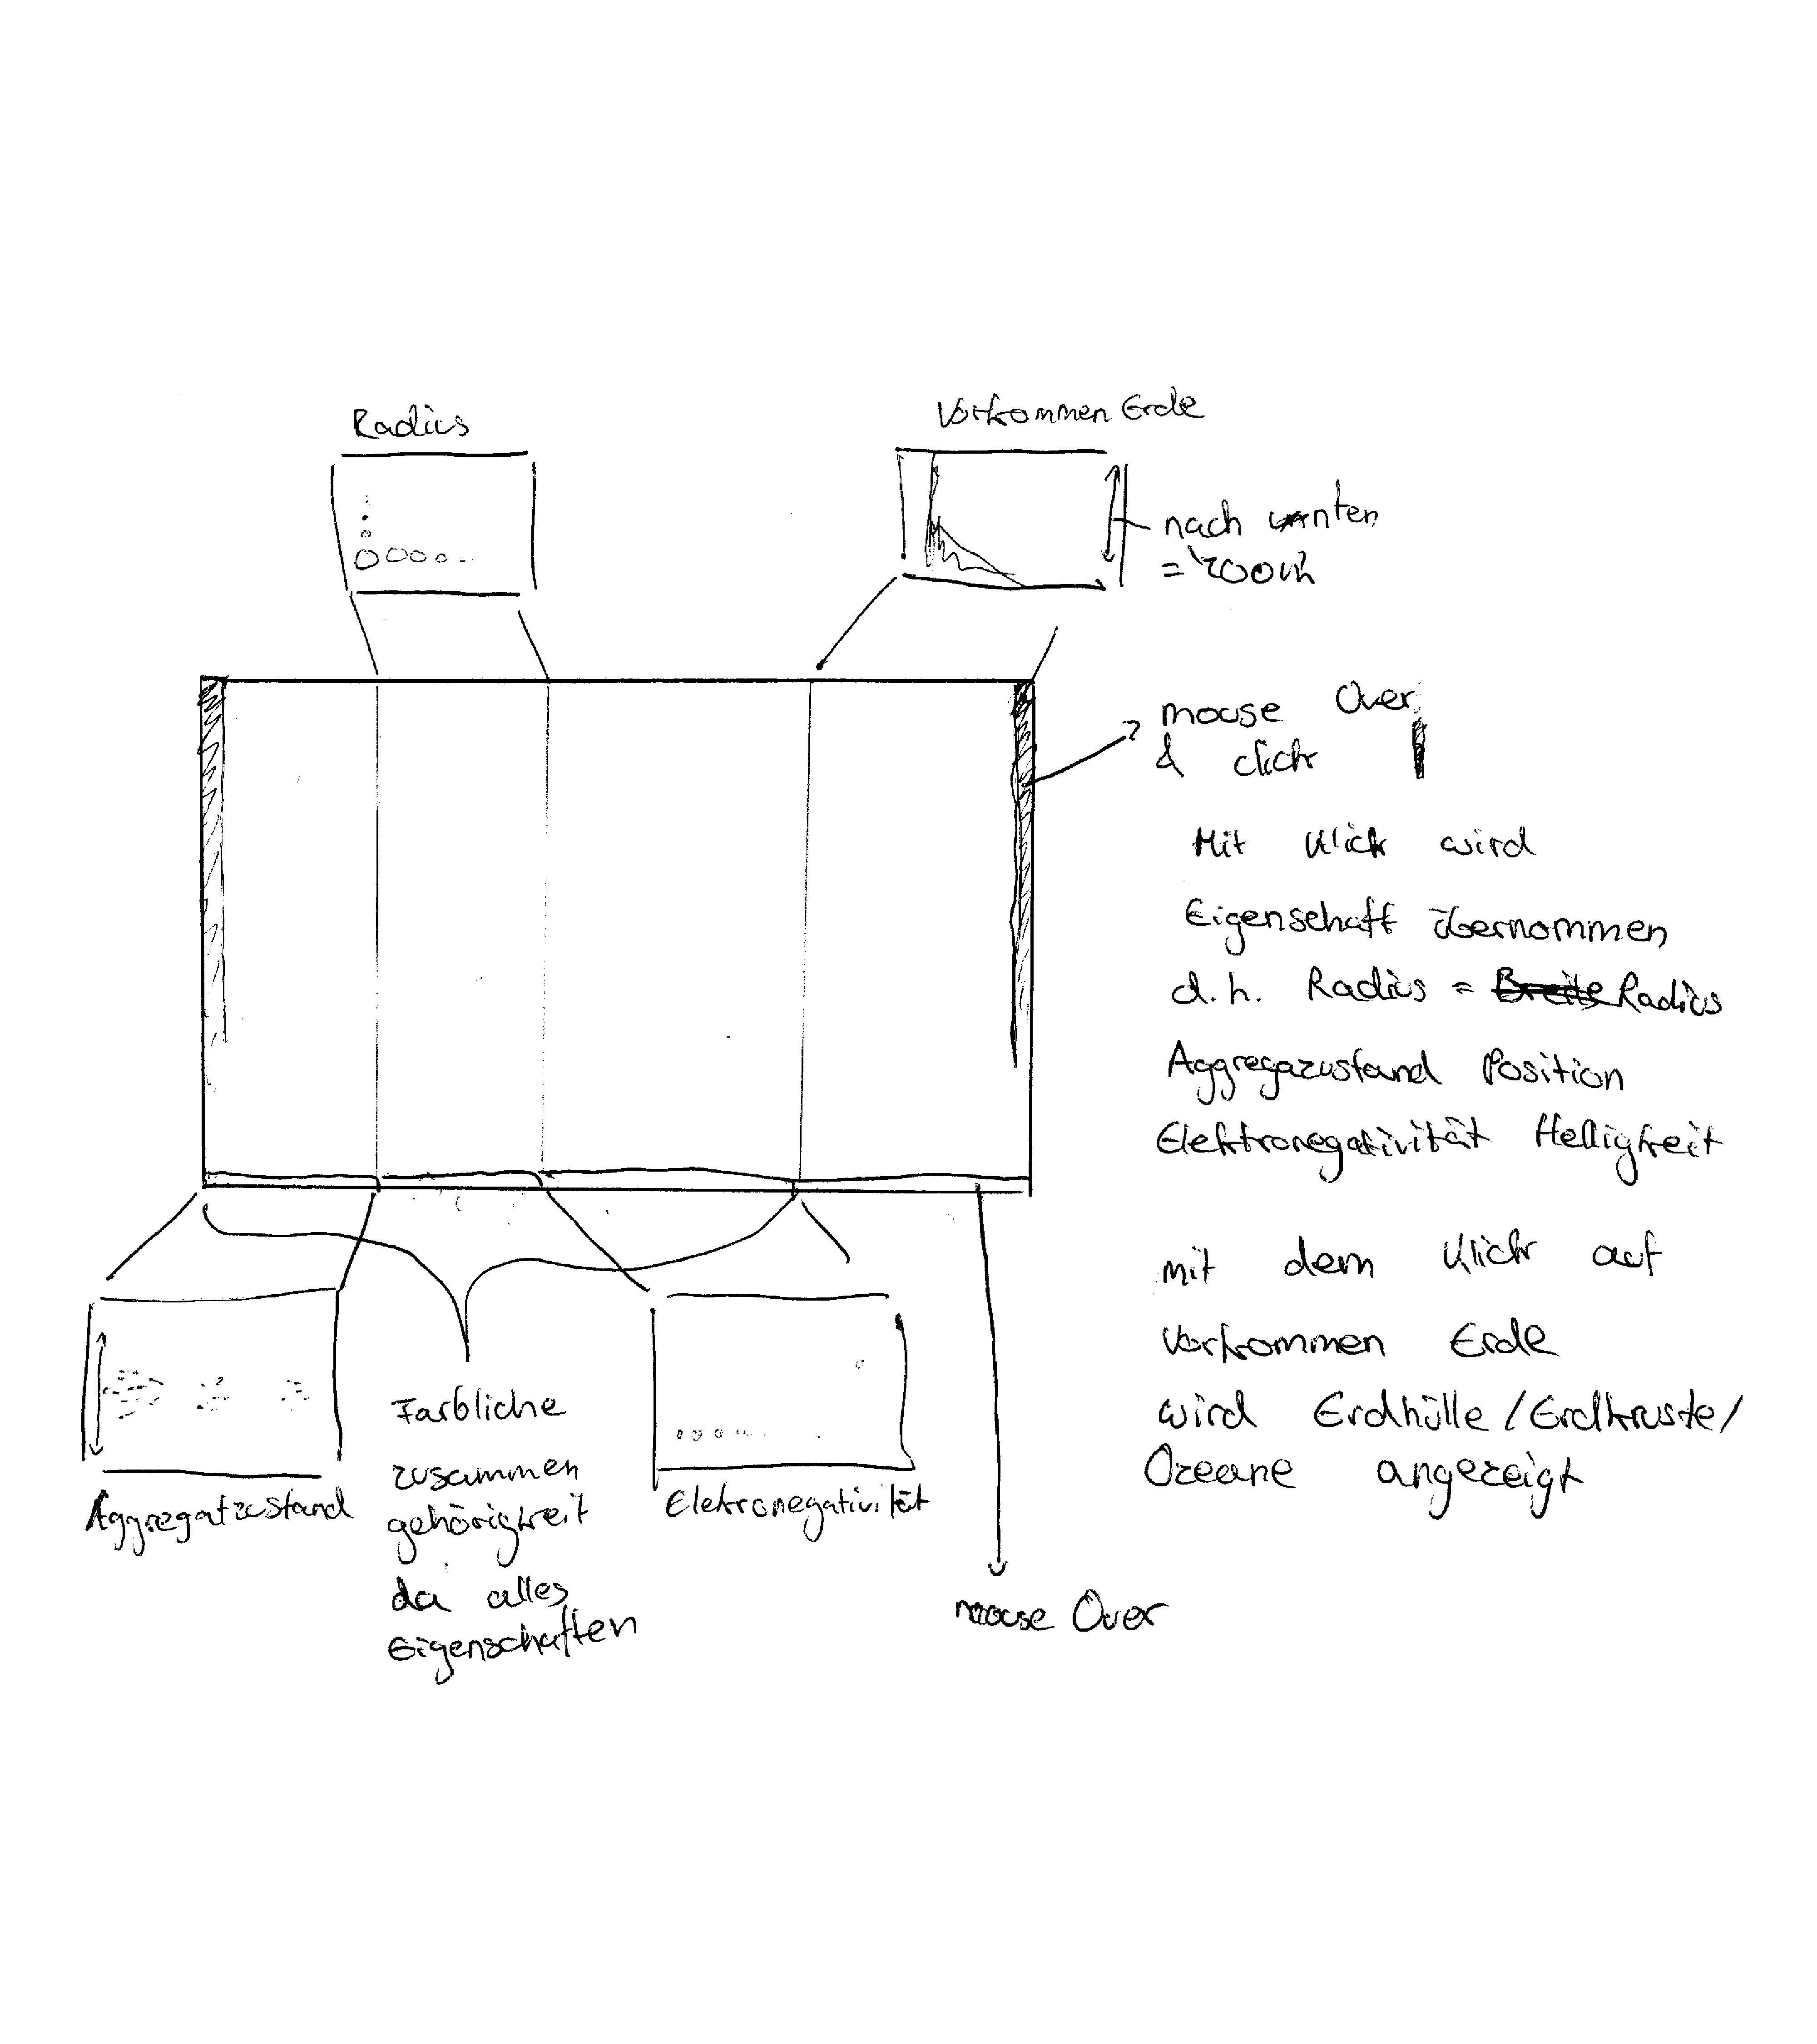 Radius
Vorkommen Erde
nach unten
= zoom
mouse Over
& click
Mit Klick wird
Eigenschaft übernommen
d.h. Radius = Breite Radius
Aggregazustand Position
Elektronegativität Helligkeit
mit dem Klick auf
Vorkommen Erde
wird Erdhülle/Erdkruste/
Ozeane angezeigt
Aggregatzustand
Farbliche
zusammen
gehörigkeit
da alles
Eigenschaften
Elektronegativität
mouse Over